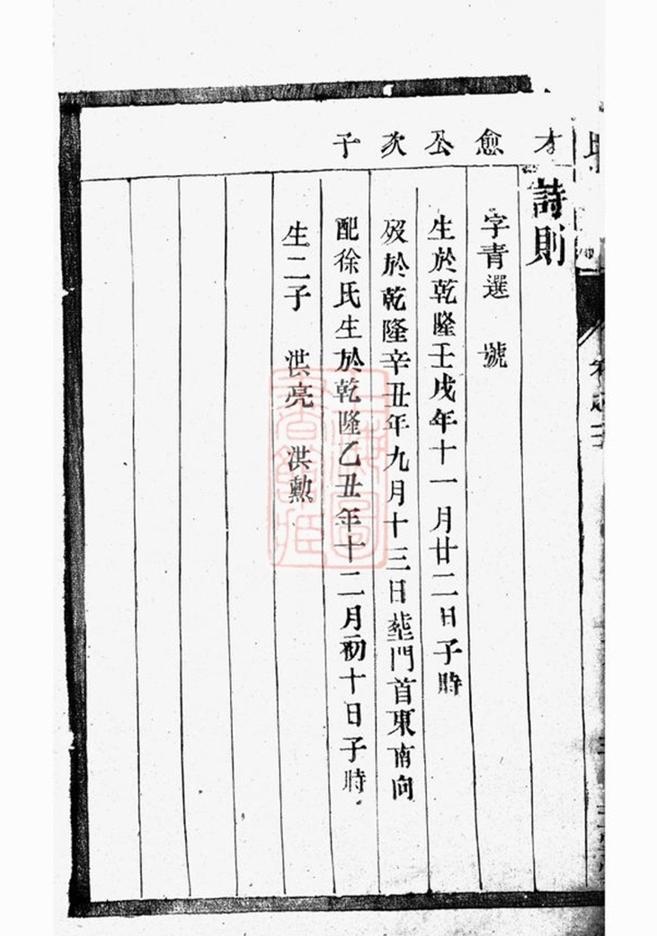 才愈公次子
詩則
字青選 號
生於乾隆壬戌年十一月廿二日子時
歿於乾隆辛丑年九月十三日塟門首東南向
配徐氏生於乾隆乙丑年十二月初十日子時
生二子 洪亮 洪勲